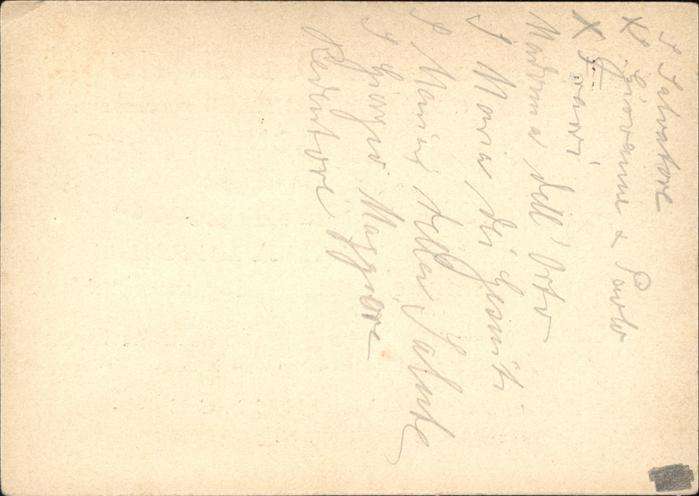 S Salvatore
X S. Giovanni & Paolo
X Frari
Madonna dell' Orto
S Maria dei Gesuiti
S Maria della Salute
S Giorgio Maggiore
Redentore